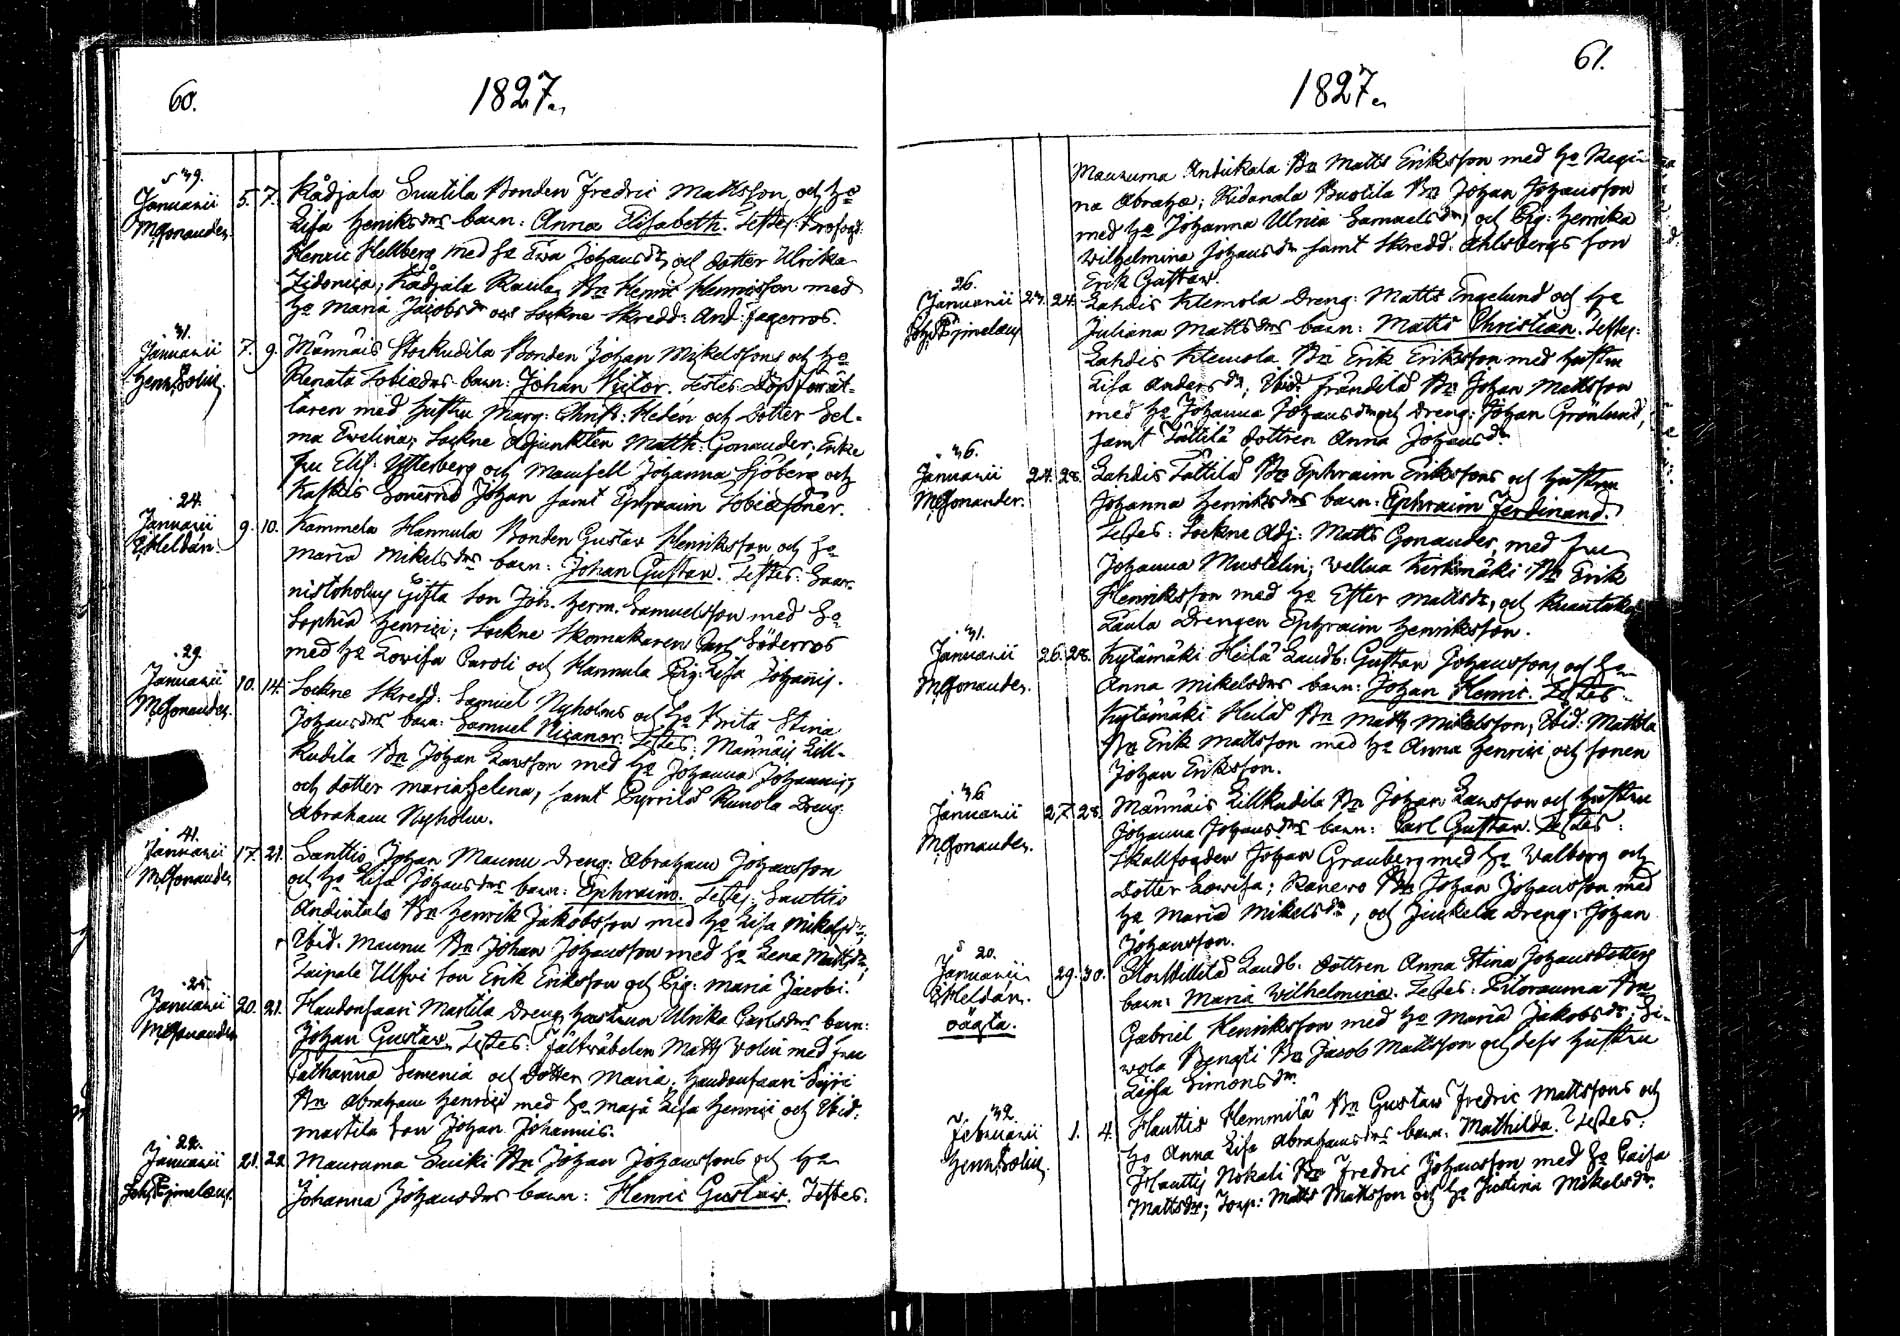 60.
1827.
39.
Januarii 5. 7. Kådjala Suutila Bonden Fredric Mattsson och Ho
MGonander. Lisa Henriksdrs barn: Anna Elisabeth. Testes: Profogd:
Henric Hellberg med Ho Ewa Johansdr, och dotter Ulrika
Zidonia, Kådjala Raula Bn Henric Henricsson med
Ho Maria Jacobsdr och Sockne Skredd: And: Fagerros.
31.
Januarii 7. 9. Männäis Storkudila Bonden Johan Mikelssons och Ho
Henr. Solin. Renata Tobiædrs barn: Johan Victor. Testes Döpförrät-
taren med hustru Marg: Christ: Hedén och Dotter Sel-
ma Ewelina, Sockne Adjunkten Matth: Gonander, Enke
fru Elis: Ytterberg och Mamsell Johanna Sjöberg och
Johan samt Ephraim Tobiæsöner.
24.
Januarii 9. 10. Kammela Hannula Bonden Gustav Henriksson och Ho
E Heldán. Maria Mikelsdrs barn: Johan Gustav. Testes: Saar-
nistoholm Gifta son Joh. Herm. Samuelsson med Ho
Sophia Henrici; Sockne Skomakaren Carl Söderros
med Ho Lovisa Caroli och Hannula Pig: Lisa Johannis.
29.
Januarii 10. 14. Sockne Skredd: Samuel Nyholms och Ho Brita Stina
MGonander. Johansdrs barn: Samuel Nicanor. Testes: Männäis Lill-
kudila Bn Johan Larsson med Ho Johanna Johannis,
och dotter Maria Helena, samt Pyrrilä Runola Dreng:
Abraham Nyholm.
41.
Januarii 17. 21. Santtio Johan Maunu dreng: Abraham Johansson
MGonander och Ho Lisa Johansdrs barn: Ephraim. Testes: Santtio
Andintalo Bn Henrik Jakobsson med Ho Lisa Mikelsdr;
Ibid. Maunu Bn Johan Johansson med Ho Lena Mattsdr,
Taipale Ulfvi son Erik Eriksson och Pig: Maria Jacobi.
25.
Januarii 20. 21. Haudonsaari Martila Dreng hustrun Ulrika Carlsdrs barn:
MGonander Johan Gustaw. Testes: Fältväbelen Matts Volin med fru
Catharina Semenia och Dotter Maria; Haudonsaari Sipri
Bn Abraham Henrici med Ho Maja Lisa Henrici och Ibid:
Martila son Johan Johannis.
22.
Januarii 21. 22. Mauruma Suiki Bn Johan Johanssons och Ho
Joh. Ejmelæus. Johanna Johansdrs barn: Henric Gustaw. Testes:
61.
1827.
Mauruma Andukala Bn Matts Eriksson med Ho Regi-
na Abrahæ; Ridanala Bustila Bn Johan Johansson
med Ho Johanna Ulrica Samuelsdr, och Pig: Henrika
Wilhelmina Johansdr samt Skredd: Ahlsbergs son
Erik Gustaw.
26.
Januarii 23. 24. Lahdis Klemola Dreng: Matts Engelund och Ho
Joh. Ejmelæus Juliana Mattsdrs barn: Matts Christian. Testes:
Lahdis Klemola Bn Erik Eriksson med hustru
Lisa Andersdr; Ibid: Frändilä Bn Johan Mattsson
med Ho Johanna Johansdr och Dreng: Johan Grönlund,
samt Tättilä dottren Anna Johansdr
36.
Januarii 24. 28. Lahdis Tättilä Bn Ephraim Erikssons och hustru
MGonander. Johanna Henriksdrs barn: Ephraim Ferdinand.
Testes: Sockne Adj: Matts Gonander, med fru
Johanna Mustelin; Vellua Kirkmäki Bn Erik
Henriksson med Ho Ester Mattsdr, och
Laula Drengen Ephraim Henriksson.
31.
Januarii 26. 28. Kylämäki Heilä Landb: Gustav Johanssons och Ho
MGonander. Anna Mikelsdrs barn: Johan Henric. Testes:
Kylämäki Heilä Bn Matts Mikelsson; Ibid: Mattila
Bn Erik Mattsson med Ho Anna Henrici och sonen
Johan Eriksson.
36
Januarii 27. 28. Männäis Lillkudila Bn Johan Larsson och hustru
MGonander. Johanna Johansdrs barn: Carl Gustav. Testes:
Skallfogden Johan Granberg med Ho Walborg och
Dotter Lovisa; Ranero Bn Johan Johansson med
Ho Maria Mikelsdr, och Juckela Dreng: Johan
Johansson.
20.
Januarii 29. 30. Landb. dottren Anna Stina Johansdotters
E Heldán. barn: Maria Wilhelmina. Testes: Bn
oägta. Gabriel Henriksson med Ho Maria Jakobsdr; Si-
vola Bengti Bn Jacob Mattsson och dess hustru
Lisa Simonsdr.
32.
Februarii 1. 4. Hauttis Hemmilä Bn Gustaw Fredric Mattssons och
Henr. Solin. Ho Anna Lisa Abrahamsdrs barn: Mathilda. Testes:
Hauttis Nokali Bn Fredric Johansson med Ho Caisa
Mattsdr; Torp: Matts Mattsson och Ho Justina Mikelsdr.